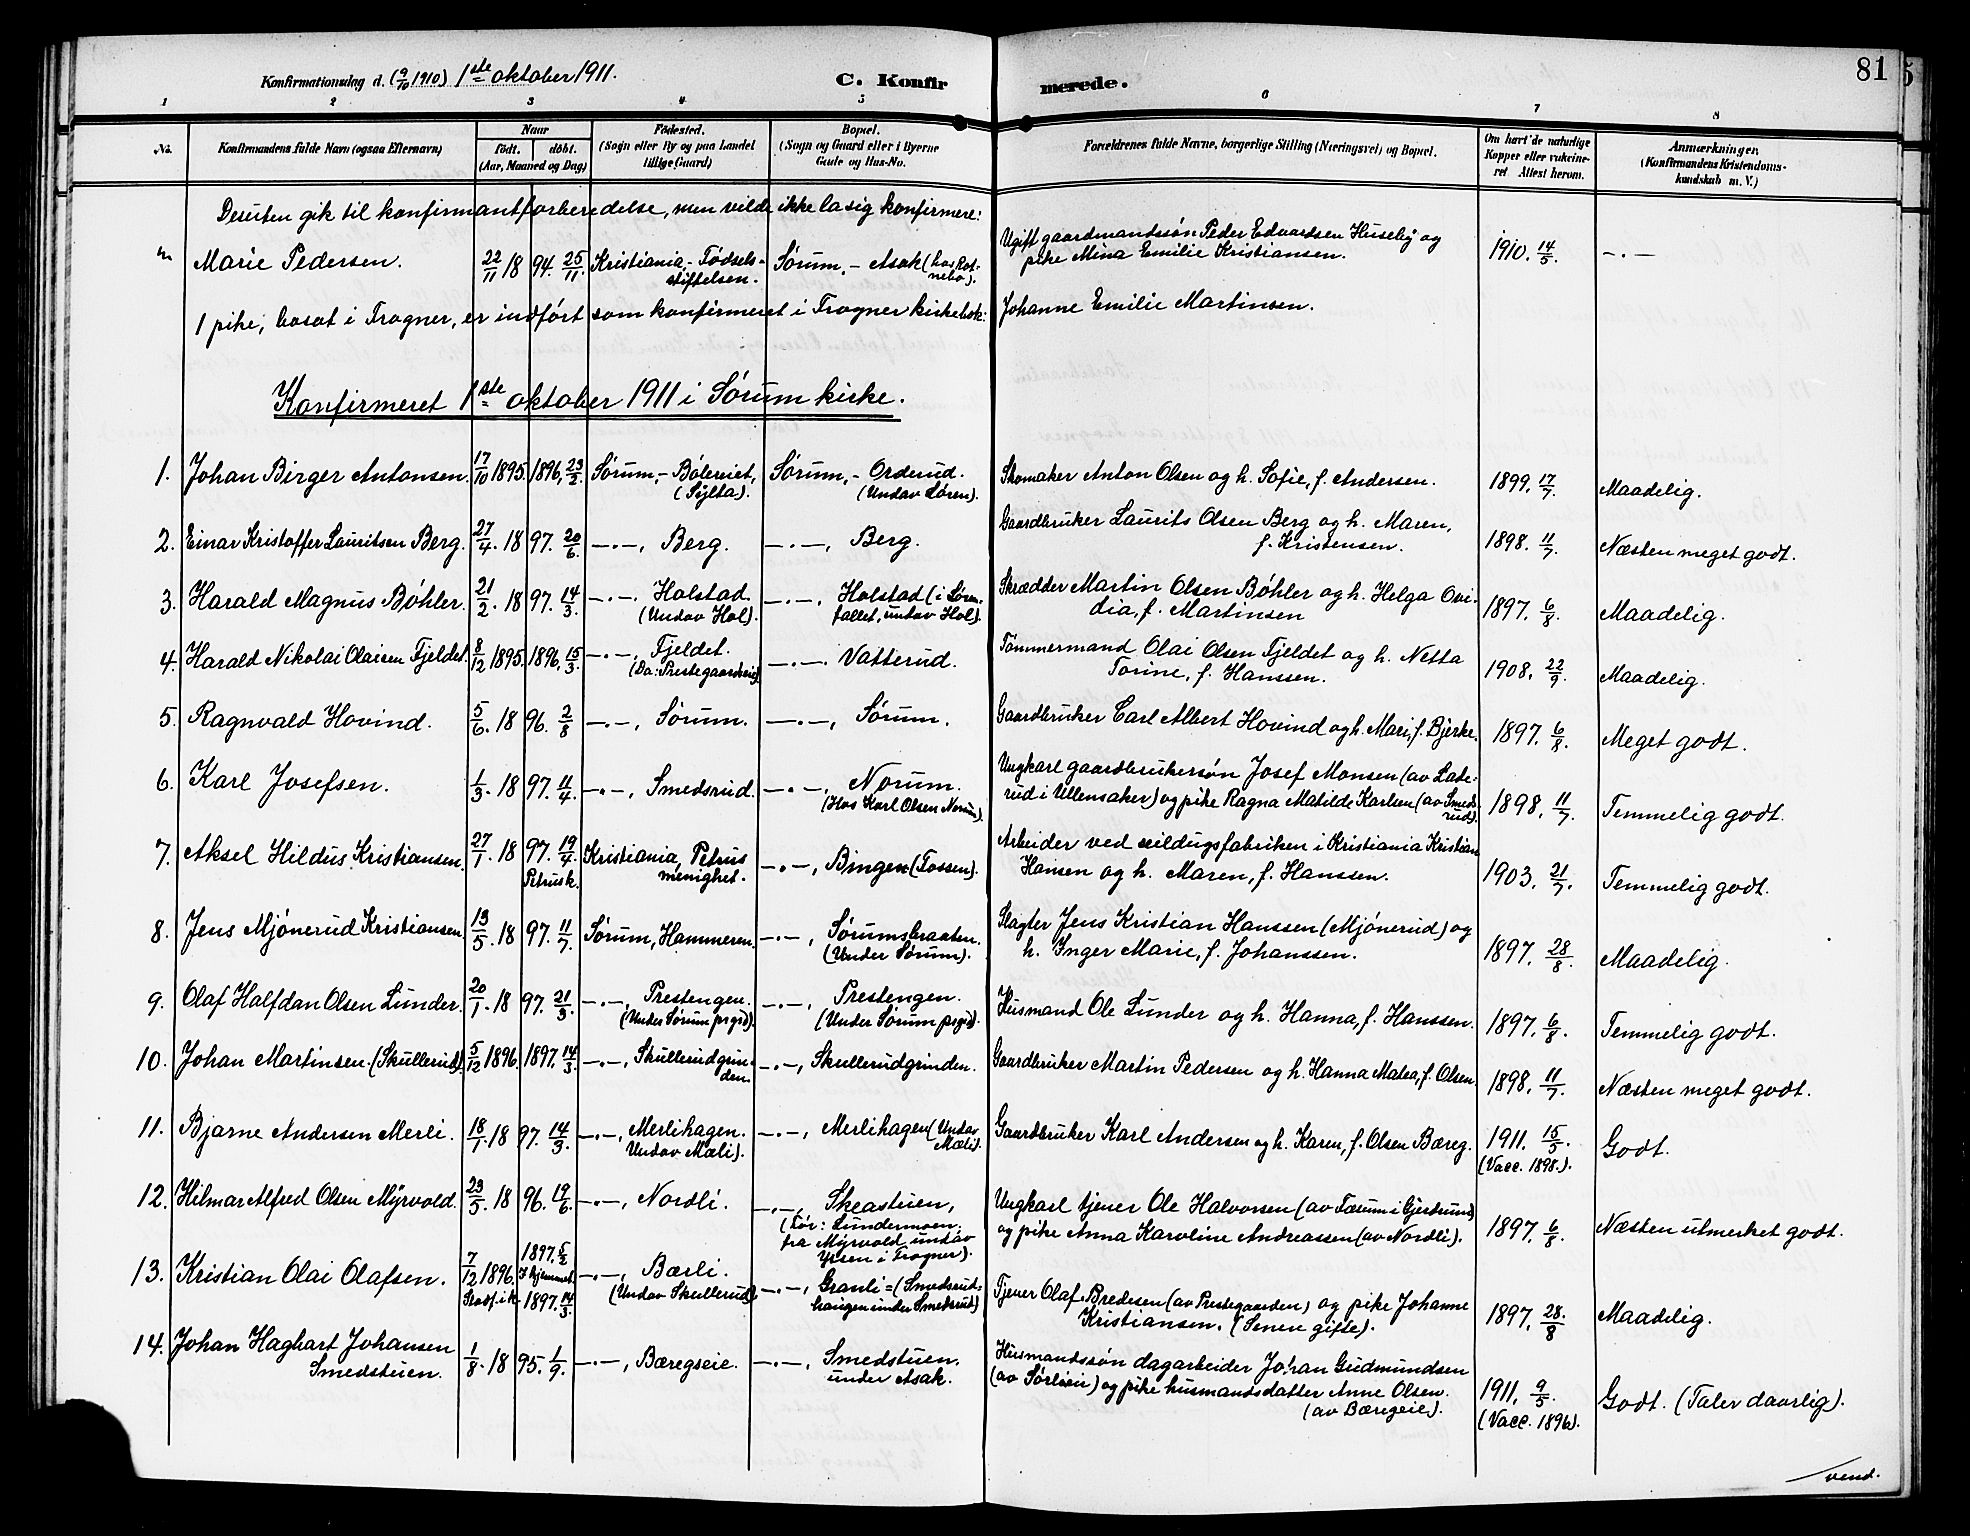 81
Konfirmationsdag d. (9/10 1910) 1ste oktober 1911.
C. Konfirmerede.
1 2 3 4 5 6 7 8
No. Konfirmandens fulde Navn (ogsaa Efternavn) Naar født. døbt. (Aar, Maaned og Dag) Fødested. (Sogn eller By og paa Landet tillige Gaard) Bopæl. (Sogn og Gaard eller i Byerne Gade og Hus-No. Forældrenes fulde Navne, borgerlige Stilling (Næringsvei) og Bopæl. Om havt de naturlige Kopper eller vakcineret Attest herom. Anmærkninger. (Konfirmandens Kristendomskundskab m. V.)
Desuten gik til konfirmantforberedelse, men vilde ikke la sig konfirmere:
Marie Pedersen. 22/11 18 94. 25/11. Kristiania - Fødselsstiftelsen. Sørum, - Asak (hos Rotnebo). Ugift gaardmandssøn Peder Edvardsen Huseby og pike Mina Emilie Kristiansen. 1910. 14/5. -.-
1 pike, bosat i Frogner, er indført som konfirmeret i Frogner kirkebok: Johanne Emilie Martinsen.
Konfirmeret 1ste oktober 1911 i Sørum kirke.
1. Johan Birger Antonsen. 17/10 1895. 1896, 23/2. Sørum, - Bølereiet, (Sylta). Sørum, - Orderud. (Undav Løren). Skomaker Anton Olsen og h. Sofie, f. Andersen. 1899. 17/7. Maadelig.
2. Einar Kristoffer Lauritsen Berg. 27/4. 18 97. 20/6. -.-, Berg. -.-, Berg. Gaardbruker Laurits Olsen Berg og h. Maren, f. Kristensen. 1898. 11/7. Næsten meget godt.
3. Harald Magnus Bøhler. 21/2. 18 97. 14/3. -.-, Holstad. (Undav Hol). -.-, Holstad (i Lørenfallet, undav Hol). Skrædder Martin Olsen Bøhler og h. Helga Ovidia, f. Martinsen 1897. 6/8. Maadelig.
4. Harald Nikolai Olaisen Fjeldet. 8/12 1895. 1896, 15/3. -.-, Fjeldet. (Da: Prestegaardseie). -.-. Vatterud. Tømmermand Olai Olsen Fjeldet og h. Netta Torine, f. Hanssen. 1908. 22/9. Maadelig.
5. Ragnvald Hovind. 5/6. 18 96. 2/8 -.-, Sørum. -.-, Sørum. Gaardbruker Carl Albert Hovind og h. Mari, f. Bjerke. 1897. 6/8. Meget godt.
6. Karl Josefsen. 1/3. 18 97. 11/4. -.-, Smedsrud. -.-, Norum. (Hos Karl Olsen Norum). Ungkarl gaardbrukersøn Josef Monsen (av Laderud i Ullensaker) og pike Ragna Matilde Karlsen (av Smedsrud). 1898. 11/7. Temmelig godt.
7. Aksel Hildus Kristiansen. 27/1. 18 97. 19/4. Petrusk. Kristiania, Petrus menighet. -.-, Bingen (Fossen). Arbeider ved seildugsfabriken i Kristiania Kristian Hansen og h. Maren, f. Hanssen. 1903. 21/7. Temmelig godt.
8. Jens Mjønerud Kristiansen. 13/5. 18 97. 11/7. Sørum, Hammeren. -.-, Sørumsbraaten. (Under Sørum). Slagter Jens Kristian Hanssen (Mjønerud) og h. Inger Marie, f. Johanssen. 1897. 28/8. Maadelig.
9. Olaf Halfdan Olsen Lunder. 20/1. 18 97. 21/3. -.-, Prestengen. (Under Sørum prgrd). -.-, Prestengen. (Under Sørum prgrd). Husmand Ole Lunder og h. Hanna, f. Hanssen. 1897. 6/8. Temmelig godt.
10. Johan Martinsen (Skullerud). 5/12 1896. 1897. 14/3 -.-, Skullerudgrinden. -.-, Skullerudgrinden. Gaardbruker Martin Pedersen og h. Hanna Matea, f. Olsen 1898. 11/7. Næsten meget godt.
11. Bjarne Andersen Merli. 18/1. 18 97. 14/3. -.-, Merlihagen. Undav Mæli). -.-, Merlihagen (Undav Mæli). Gaardbruker Karl Andersen og h. Karen, f. Olsen Bæreg. 1911. 15/5. (Vacc. 1898.). Godt.
12. Hilmar Alfred Olsen Myrvold. 23/5. 18 96. 19/6. -.-, Nordli. -.-, Skeastuen, (Før: Lundermoen. fra Myrvold undav Ysen i Frogner). Ungkarl tjener Ole Halvorsen (av Færum i Gjerdrum) og pike Anna Karoline Andreassen (av Nordli). 1897. 6/8. Næsten utmerket godt.
13. Kristian Olai Olafsen. 7/12 1896. Stadf. i k. 1897. 5/2 Hjemmed. 1897. 14/3 -.-, Bærli. (Undav Skullerud). -.-, Granli = (Smedsrudhaugen under Smedsrud) Tjener Olaf Bredesen (av Prestegaarden) og pike Johanne Kristiansen. (Senere gifte). 1897. 28/8. Maadelig.
14. Johan Hagbart Johansen Smedstuen. 1/8. 18 95. 1/9. -.-, Bæregseie. -.-, Smedstuen. under Asak. Husmandssøn dagarbeider Johan Gudmundsen (av Sørlieeie) og pike husmandsdatter Anne Olsen. (av Bæregeie). 1911. 9/5. (Vacc. 1896). Godt. (Taler daarlig).
vend.